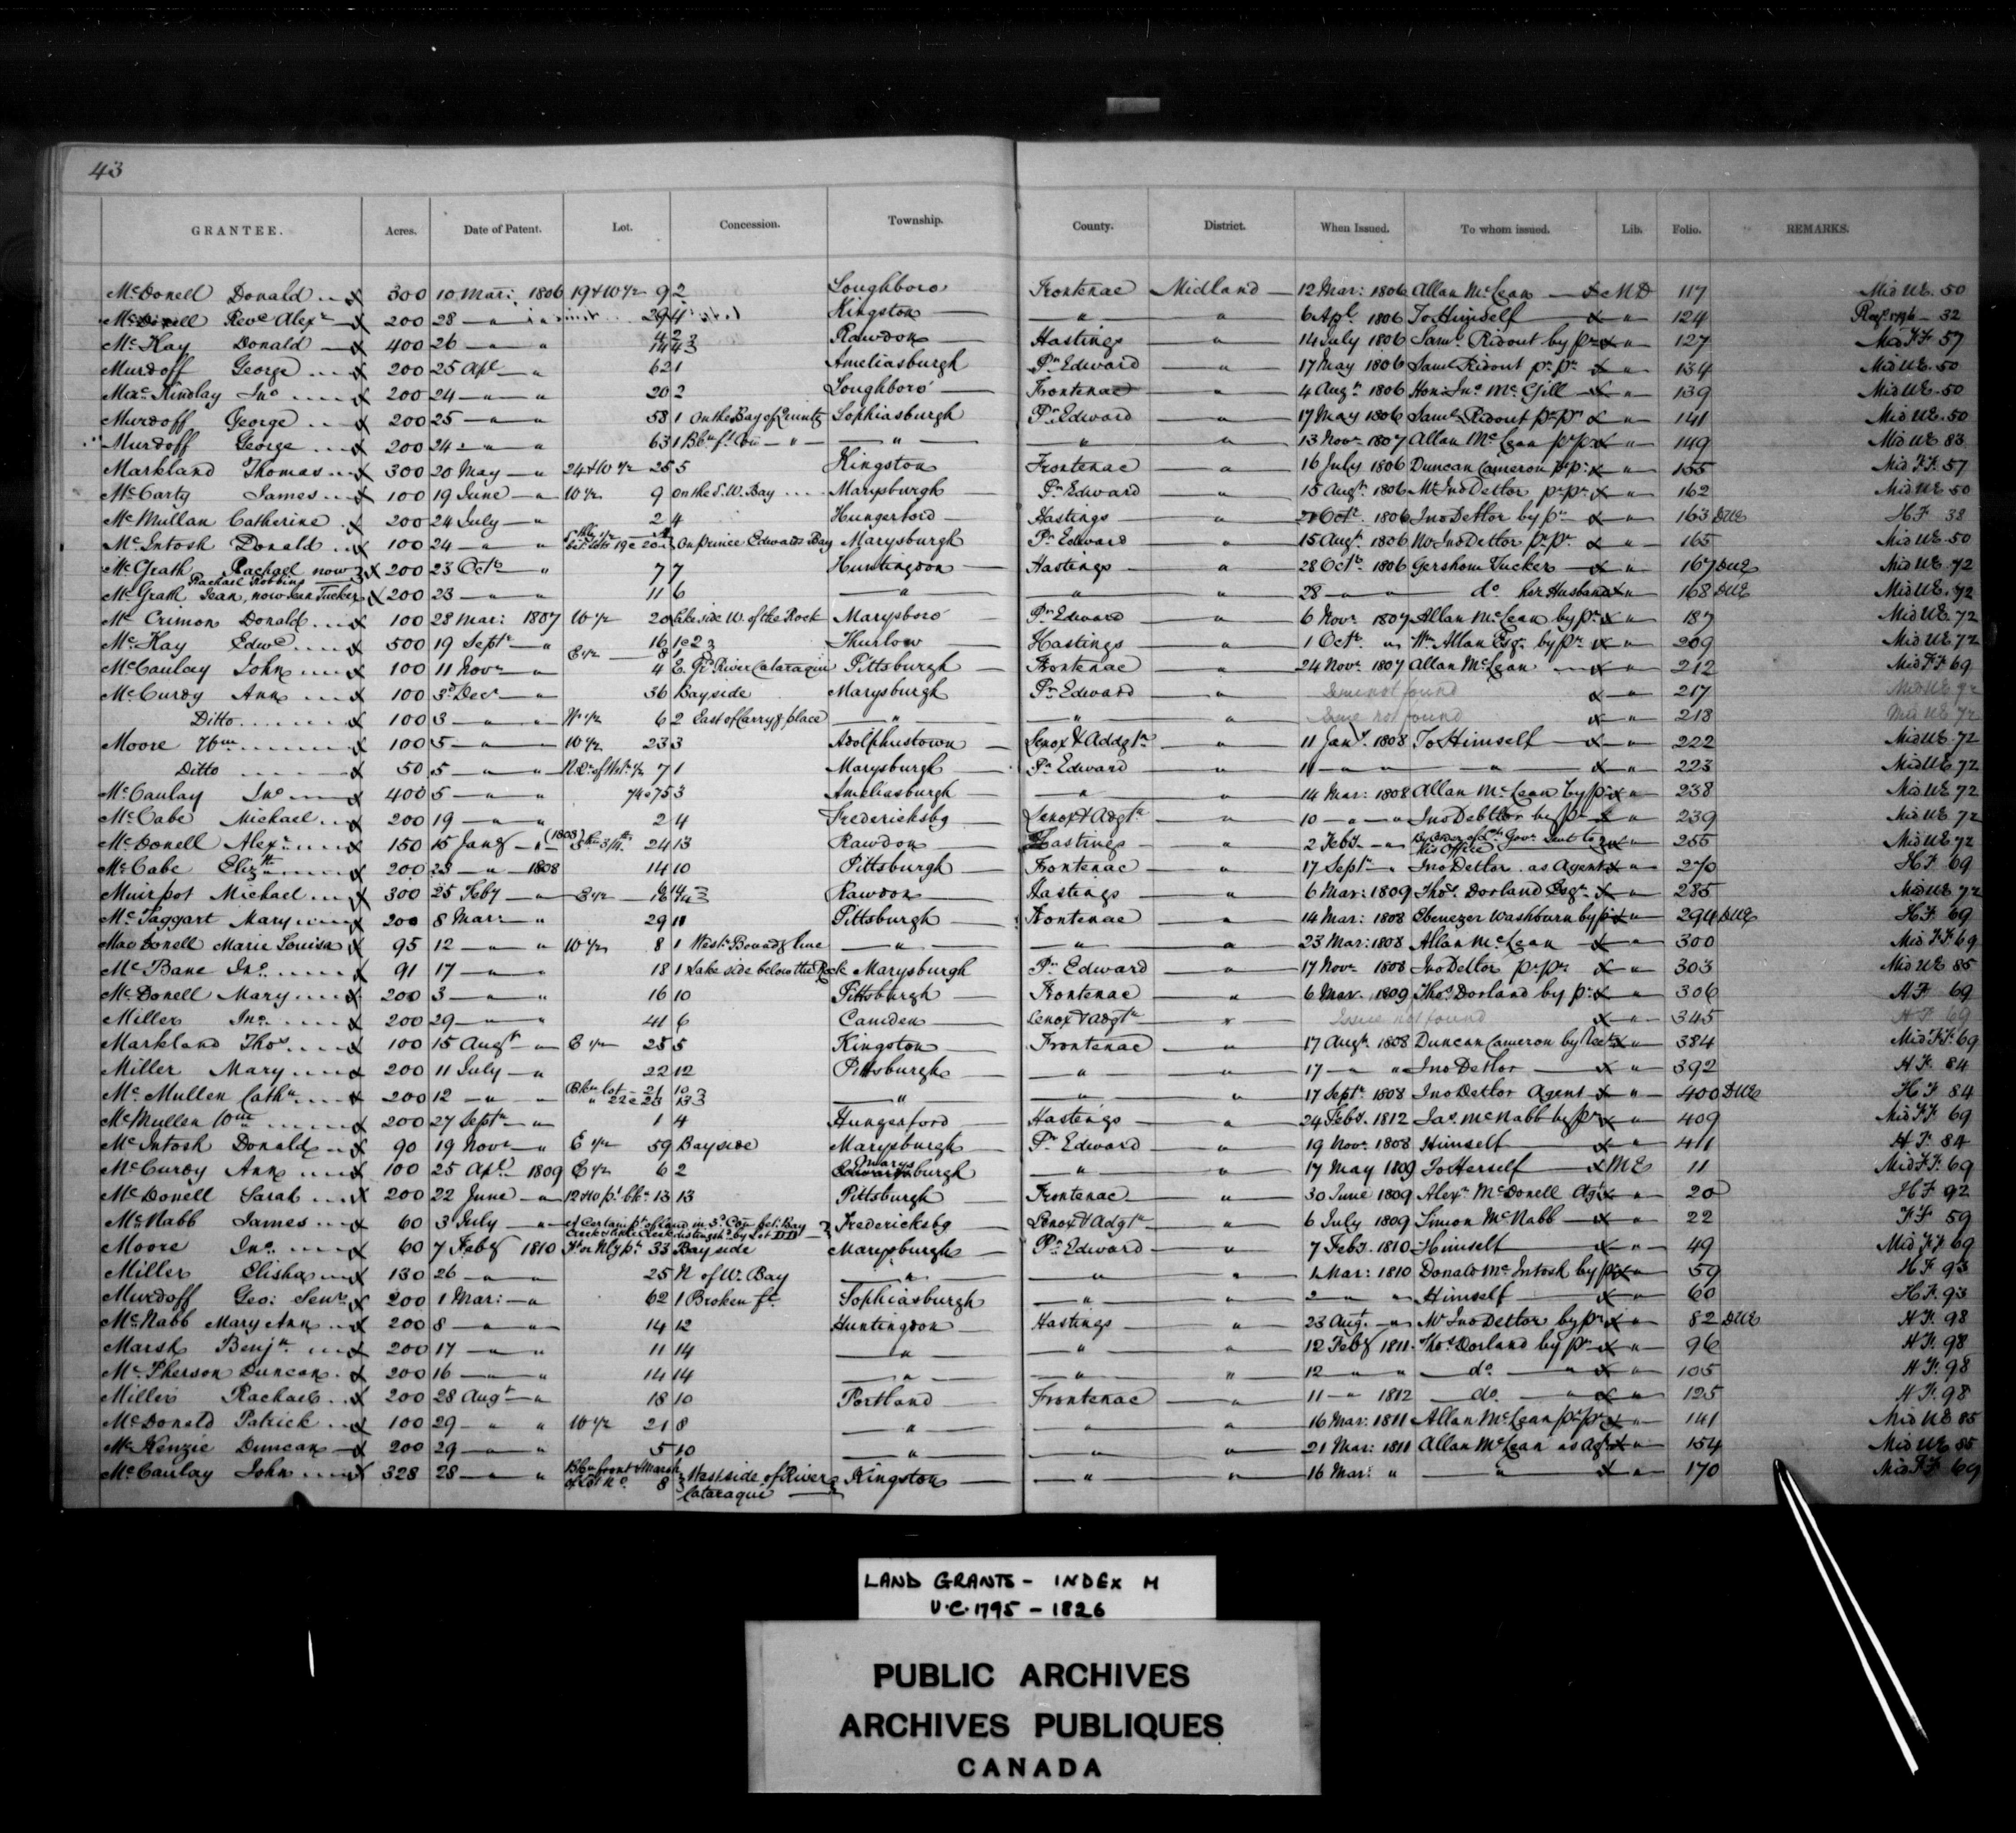 43
GRANTEE. Acres. Date of Patent. Lot. Concession. Township. County. District. When Issued. To whom issued. Lib. Folio. REMARKS.
McDonell Donald 300 10 Mar: 1806 19 & W 1/2 9 2 Loughboro Frontenac Midland 12 Mar: 1806 Allan McLean MD 117 Mid UE. 50
Revd Alexr 200 28 " 29 4 Kingston " " 6 Apl 1806 To Himself " 124 32
McKay Donald 400 26 " " 14 Rawdon Hastings " 14 July 1806 Saml Ridout by pr " 127 57
Murdoff George 200 25 Apl " 62 1 Ameliasburgh Pr Edward " 17 May 1806 Saml Ridout pr pr " 134 Mid UE. 50
MacKindlay Jno 200 24 " " 20 2 Loughboro Frontenac " 4 Augt 1806 Hon: Jno McGill " 139 Mid UE. 50
Murdoff George 200 25 " " 58 1 On the Bay of Quinty Sophiasburgh Pr Edward " 17 May 1806 Saml Ridout pr pr " 141 Mid UE. 50
Murdoff George 200 24 " " 63 1 Bkn ft Con " " " " 13 Novr 1807 Allan McLean pr pr " 149 Mid UE 83
Markland Thomas 300 20 May " 24 & W 1/2 25 5 Kingston Frontenac " 16 July 1806 Duncan Cameron pr pr " 155 Mid FF. 57
McCarty James 100 19 June " W 1/2 9 On the S.W. Bay Marysburgh Pr Edward " 15 Augt 1806 Mr Jno Dettor pr pr " 162 Mid UE 50
McMullan Catherine 200 24 July " 2 4 Hungerford Hastings " Octr 1806 Jno Dettor by pr " 163 DUE H F 38
McIntosh Donald 100 24 " " bet. lots 19 & 20 On Prince Edwards Bay Marysburgh Pr Edward " 15 Augt 1806 Mr Jno Dettor pr pr " 165 Mid UE. 50
McGrath Rachael now 200 23 Octr " 7 7 Huntingdon Hastings " 28 Octr 1806 Gershom Tucker " 167 DUE Mid UE. 72
Rachael Robbins
McGrath Jean, now Jean Tucker 200 23 " " 11 6 " " " 28 " " do her Husband " 168 DUE Mid UE. 72
McCrimon Donald 100 28 Mar: 1807 W 1/2 20 Lake side W. of the Rock Marysboro Pr Edward " 6 Novr 1807 Allan McLean by pr " 187 Mid UE 72
McKay Edwd 500 19 Septr " E 1/2 16 1 & 2 8 1 Thurlow Hastings " 1 Octr " Wm Allan Esqr by pr " 209 Mid UE 72
McCaulay John 100 11 Novr " 4 E. Gt River Cataraqui Pittsburgh Frontenac " 24 Novr 1807 Allan McLean " 212 Mid FF 69
McCurdy Ann 100 3d Decr " 36 Bay side Marysburgh Pr Edward " Issue not found " 217 Mid UE 72
Ditto 100 3 " " W 1/2 6 2 East of Carryg place " " " Issue not found " 218 Mid UE 72
Moore Wm 100 5 " " W 1/2 23 3 Adolphustown Lenox & Addgtn " 11 Jany 1808 To Himself " 222 Mid UE. 72
Ditto 50 5 " " 7 1 Marysburgh Pr Edward " 11 " " " " 223 Mid UE 72
McCaulay Jno 400 5 " " 74 & 75 3 Ameliasburgh " " 14 Mar: 1808 Allan McLean by pr " 238 Mid UE 72
McCabe Michael 200 19 " " 2 4 Fredericksbg Lenox & Adgtn " 10 " " Jno Dettor by pr " 239 Mid UE 72
McDonell Alexr 150 15 Jany (1808) 24 13 Rawdon Hastings " 2 Feby " By order of Lt Govr sent to his Office " 255 Mid UE 72
McCabe Elizth 200 23 " 1808 14 10 Pittsburgh Frontenac " 17 Septr " Jno Dettor as Agent " 270 H F 69
Michael 300 25 Feby " E 1/2 Rawdon Hastings " 6 Mar: 1809 Thos Dorland Esqr " 285 Mid UE 72
McTaggart Mary 200 8 Mar: " 29 11 Pittsburgh Frontenac " 14 Mar: 1808 Ebenezer Washburn by pr " 294 DUE H F. 69
MacDonell Marie Louisa 95 12 " " W 1/2 8 1 Westn Boundy line " " " 23 Mar: 1808 Allan McLean " 300 Mid FF. 69
McBane Jno 91 17 " " 18 1 Lake side below the Rock Marysburgh Pr Edward " 17 Novr 1808 Jno Dettor pr pr " 303 Mid UE 85
McDonell Mary 200 3 " " 16 10 Pittsburgh Frontenac " 6 Mar. 1809 Thos Dorland by pr " 306 H F 69
Miller Jno 200 29 " " 41 6 Camden Lenox & Adgtn " Issue not found " 345 H F 69
Markland Thos 100 15 Augt " E 1/2 25 5 Kingston Frontenac " 17 Augt 1808 Duncan Cameron by Rect " 384 Mid FF 69
Miller Mary 200 11 July " 22 12 Pittsburgh " " 17 " " Jno Dettor " 392 H F. 84
McMullen Cathn 200 12 " " Bkn lot 21 10 " 22 & 23 13 " " " 17 Septr 1808 Jno Dettor Agent " 400 DUE H F 84
McMullen Wm 200 27 Septr " 1 4 Hungerford Hastings " 24 Feby 1812 Jas McNabb by pr " 409 Mid FF. 69
McIntosh Donald 90 19 Novr " E 1/2 59 Bay side Marysburgh Pr Edward " 19 Novr 1808 Himself " 411 H F. 84
McCurdy Ann 100 25 Apl 1809 E 1/2 6 2 Marysburgh " " 17 May 1809 To Herself ME 11 Mid FF. 69
McDonell Sarah 200 22 June " 12 & W pt bkn 13 13 Pittsburgh Frontenac " 30 June 1809 Alexr McDonell Agt " 20 H F 92
McNabb James 60 3 July " A Certain pt of land in 3d Con bet. Hay Creek & Little Creek distingd by Lot DD Fredericksbg Lenox & Adgtn " 6 July 1809 Simon McNabb " 22 FF 59
Moore Jno 60 7 Feby 1810 33 Bay side Marysburgh Pr Edward " 7 Feby 1810 Himself " 49 Mid FF 69
Miller Elisha 130 26 " " 25 N of W. Bay " " " 1 Mar: 1810 Donald McIntosh by pr " 59 H F. 93
Murdoff Geo: Senr 200 1 Mar: " 62 1 Broken ft Sophiasburgh " " 2 " " Himself " 60 H F. 93
McNabb Mary Ann 200 8 " " 14 12 Huntingdon Hastings " 23 Augt " Mr Jno Dettor by pr " 82 DUE H F. 98
Marsh Benjn 200 17 " " 11 14 " " " 12 Feby 1811 Thos Dorland by pr " 96 H F. 98
McPherson Duncan 200 16 " " 14 14 " " " 12 " " do " " 105 H F. 98
Miller Rachael 200 28 Augt " 18 10 Portland Frontenac " 11 " 1812 do " " 125 H F. 98
McDonald Patrick 100 29 " " W 1/2 21 8 " " " 16 Mar: 1811 Allan McLean pr pr " 141 Mid UE 85
McKenzie Duncan 200 29 " " 5 10 " " " 21 Mar: 1811 Allan McLean as Agt " 154 Mid UE 85
McCaulay John 328 28 " " Bkn front & Marsh of Lot No 8 West side of River Cataraqui Kingston " " 16 Mar: " " " 170 Mid FF 69
LAND GRANTS - INDEX M
U.C. 1795 - 1826
PUBLIC ARCHIVES
ARCHIVES PUBLIQUES
CANADA